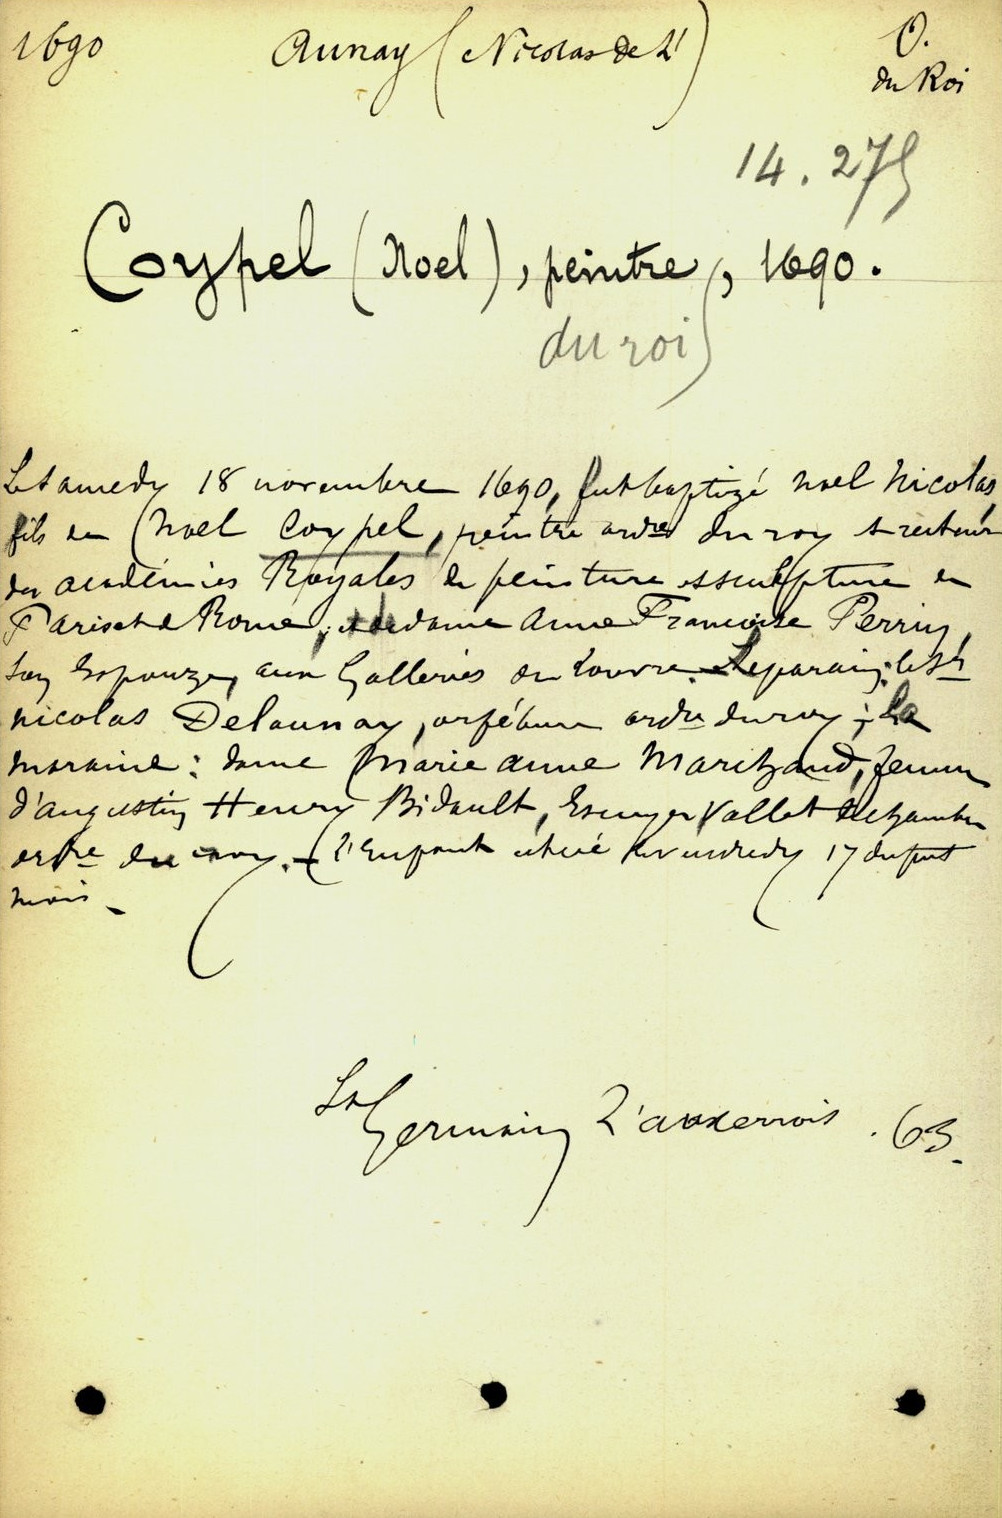 1690 Aunay (Nicolas de L') O.
du Roi
14.275
Coypel (Noel), peintre, 1690.
du roi
Le samedy 18 novembre 1690, fut baptizé Noel Nicolas,
fils de Noel Coypel, peintre ordre du roy et recteur
des académies Royales de peinture et sculpture de
Paris et de Rome, et de dame Anne Françoise Perrin,
son Espouze, aux Galleries du Louvre. Le parain: le Sr
Nicolas Delaunay, orfébure ordre du roy; la
maraine: dame Marie Anne Marchand, femme
d'Augustin Henry Bidault, Escuyer Vallet de chambre
ordre du roy. - L'Enfant est né le vendredy 17 du put
mois -
St Germain L'auxerrois. 63.